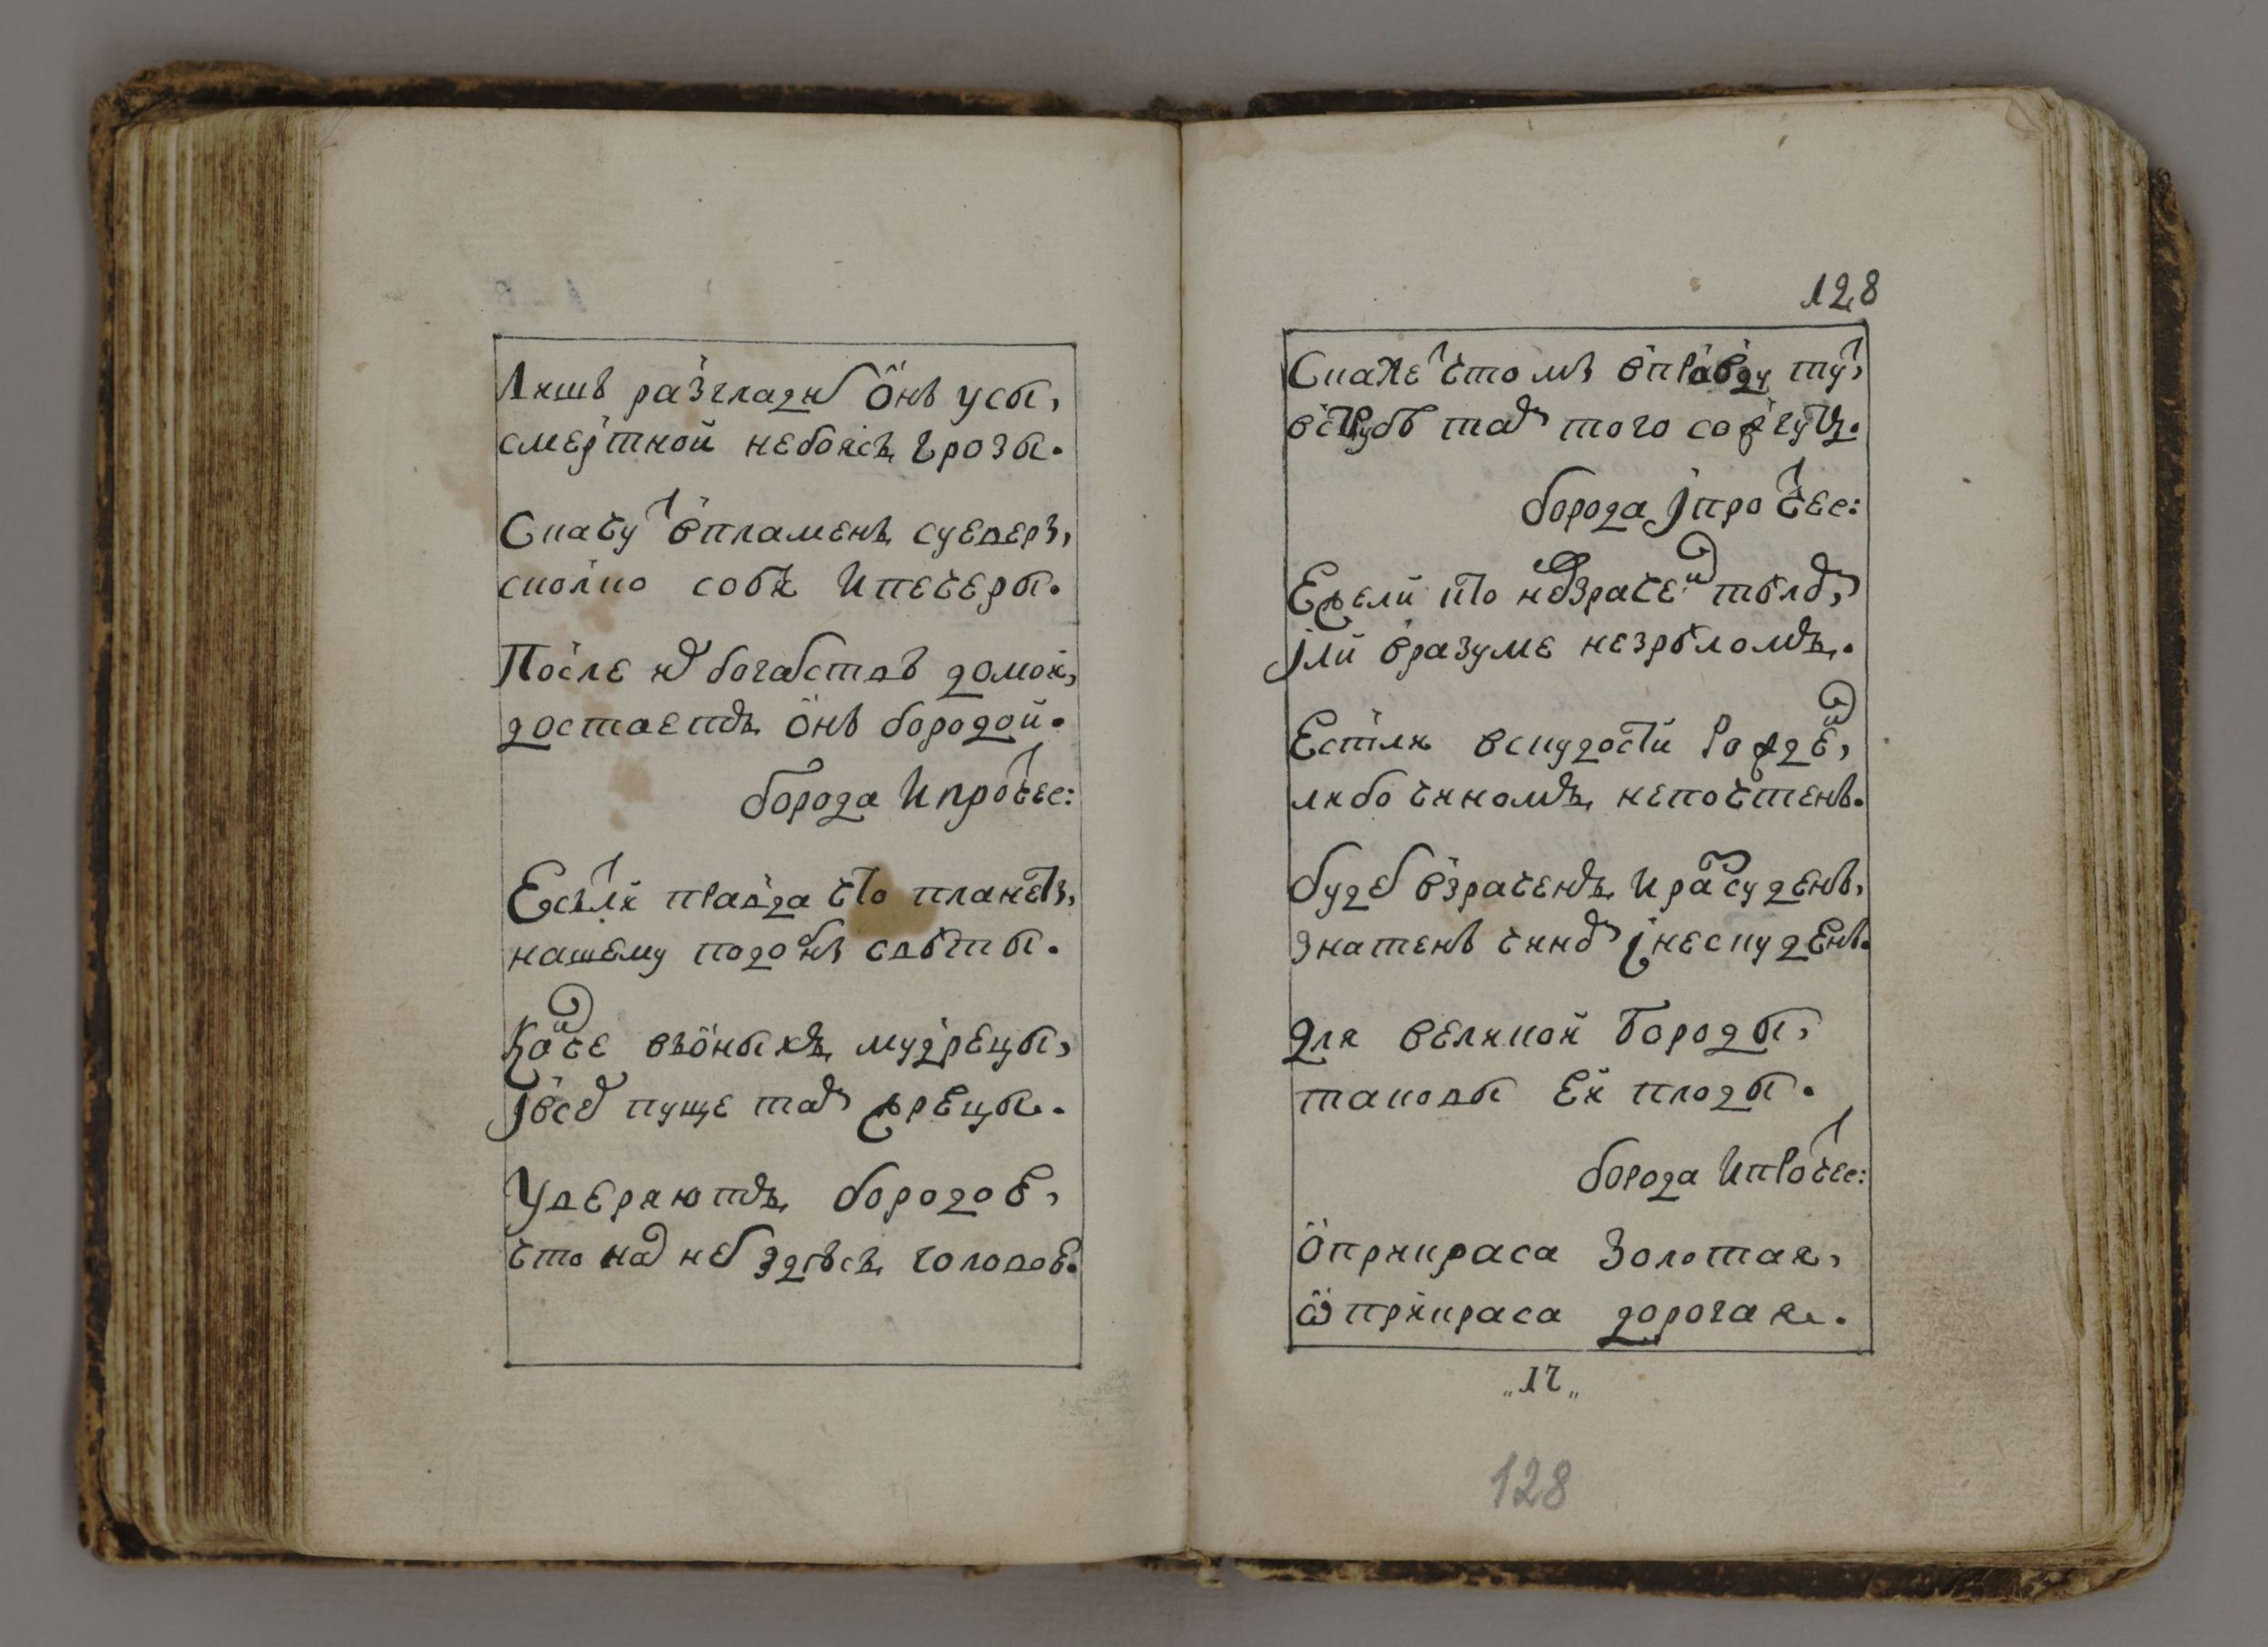 Лишь разгладит онъ усы,
смертной небоясь грозы.
Скачут впламень суеверъ,
сколко собѣ Ипечеры.
После них богатствъ домой,
достаетъ онъ бородой.
борода Ипрочее:
Есьли правда что планеты,
нашему подобнъ свѣты.
Кончe въоныхъ мудрецы,
Iвсех пуще там жрецы.
Уверяютъ бородою,
что над нет здѣсь головою.
128
Скажет кто мъ вправду тут,
вструбѣ там того сожгутъ.
борода Iпрочее:
Ежели кто невзрачен тѣлом,
Iли вразуме незрѣломъ.
Естли вскудости рожден,
либо чиномъ непочтенъ.
будет взраченъ Ирассуденъ,
знатенъ чином Iнескуденъ.
Для великой бороды,
таковы Ей плоды.
борода Ипрочее:
О прикраса Золотая,
ѽ прикраса дорогая.
„17„
128